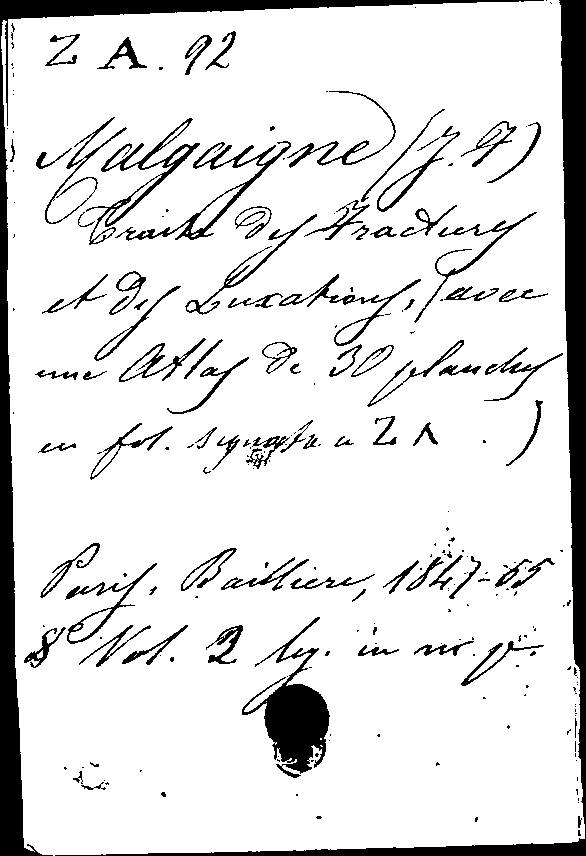 Z A. 92
Malgaigne (J. F)
Traité des Fractures
et des Luxations, (avec
une Atlas de 30 planches
en fol. segnato a Z A . )
Paris, Baillière, 1847-55
8° Vol. 2 leg. in m. p.